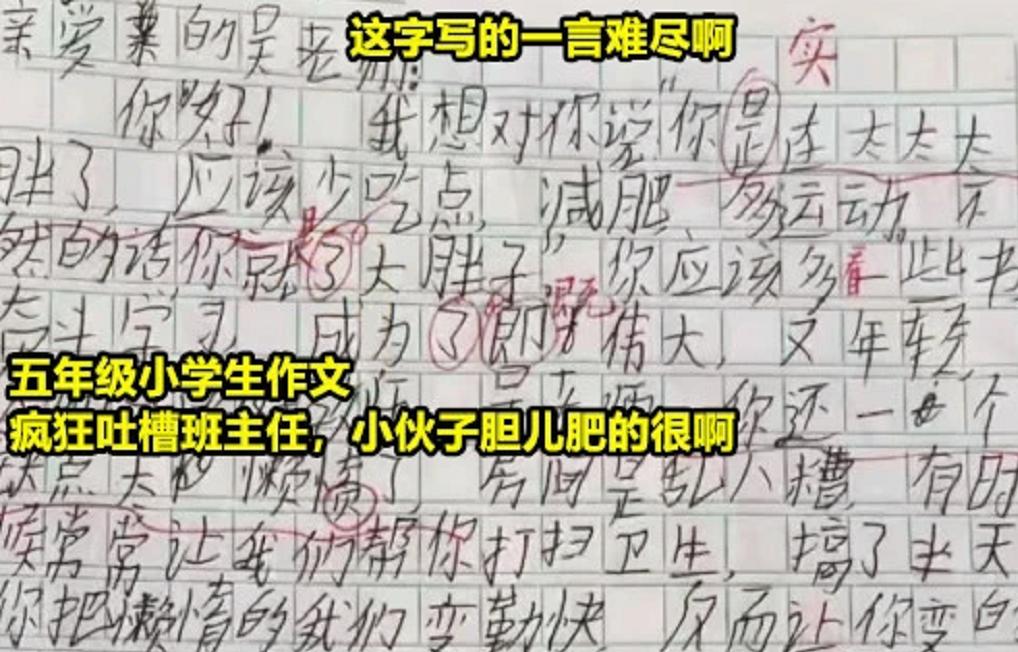 亲爱的吴老师: 这字写的一言难尽啊
实
你好! 我想对你说"你是在太太太
胖了, 应该少吃点, 减肥 多运动。不
是
然的话你就了大胖子" 你应该多看些书
既
学习 成为了即才伟大, 又年轻
五年级小学生作文
你还一个
疯狂吐槽班主任,小伙子胆儿肥的很啊
缺点太 懒惰了 房间是乱八糟, 有时
候常常让我们帮你打扫卫生, 搞了半天
你把懒惰的我们变勤快 反而让你变的